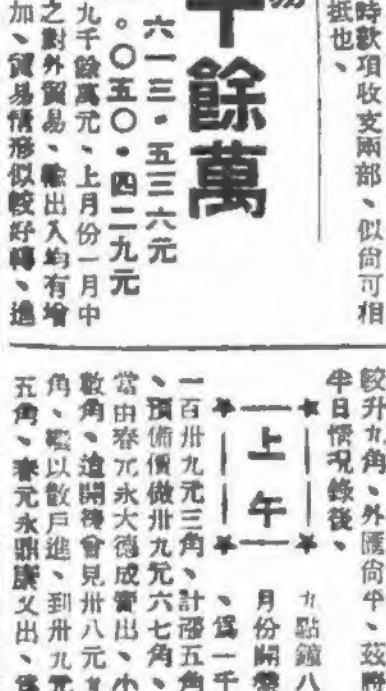 時款項收支兩部、似尙可相
抵也、
千餘萬
六一三•五三六元
。〇五〇•四二九元
九千餘萬元、上月份一月中
之對外貿易、輸出入均有增
加、貿易情形似較好轉、進
較升九角、外匯尙平、茲
半日情况錄後、
上午
九點鐘八
月份開
、爲一千
一百卅九元三角、計漲五角
、預備價做卅九元六七角、
當由春元永大德成賣出、小
數角、這開後會見卅八元九
角、繼以散戶進、到卅九元
五角、春元永鼎康又出、